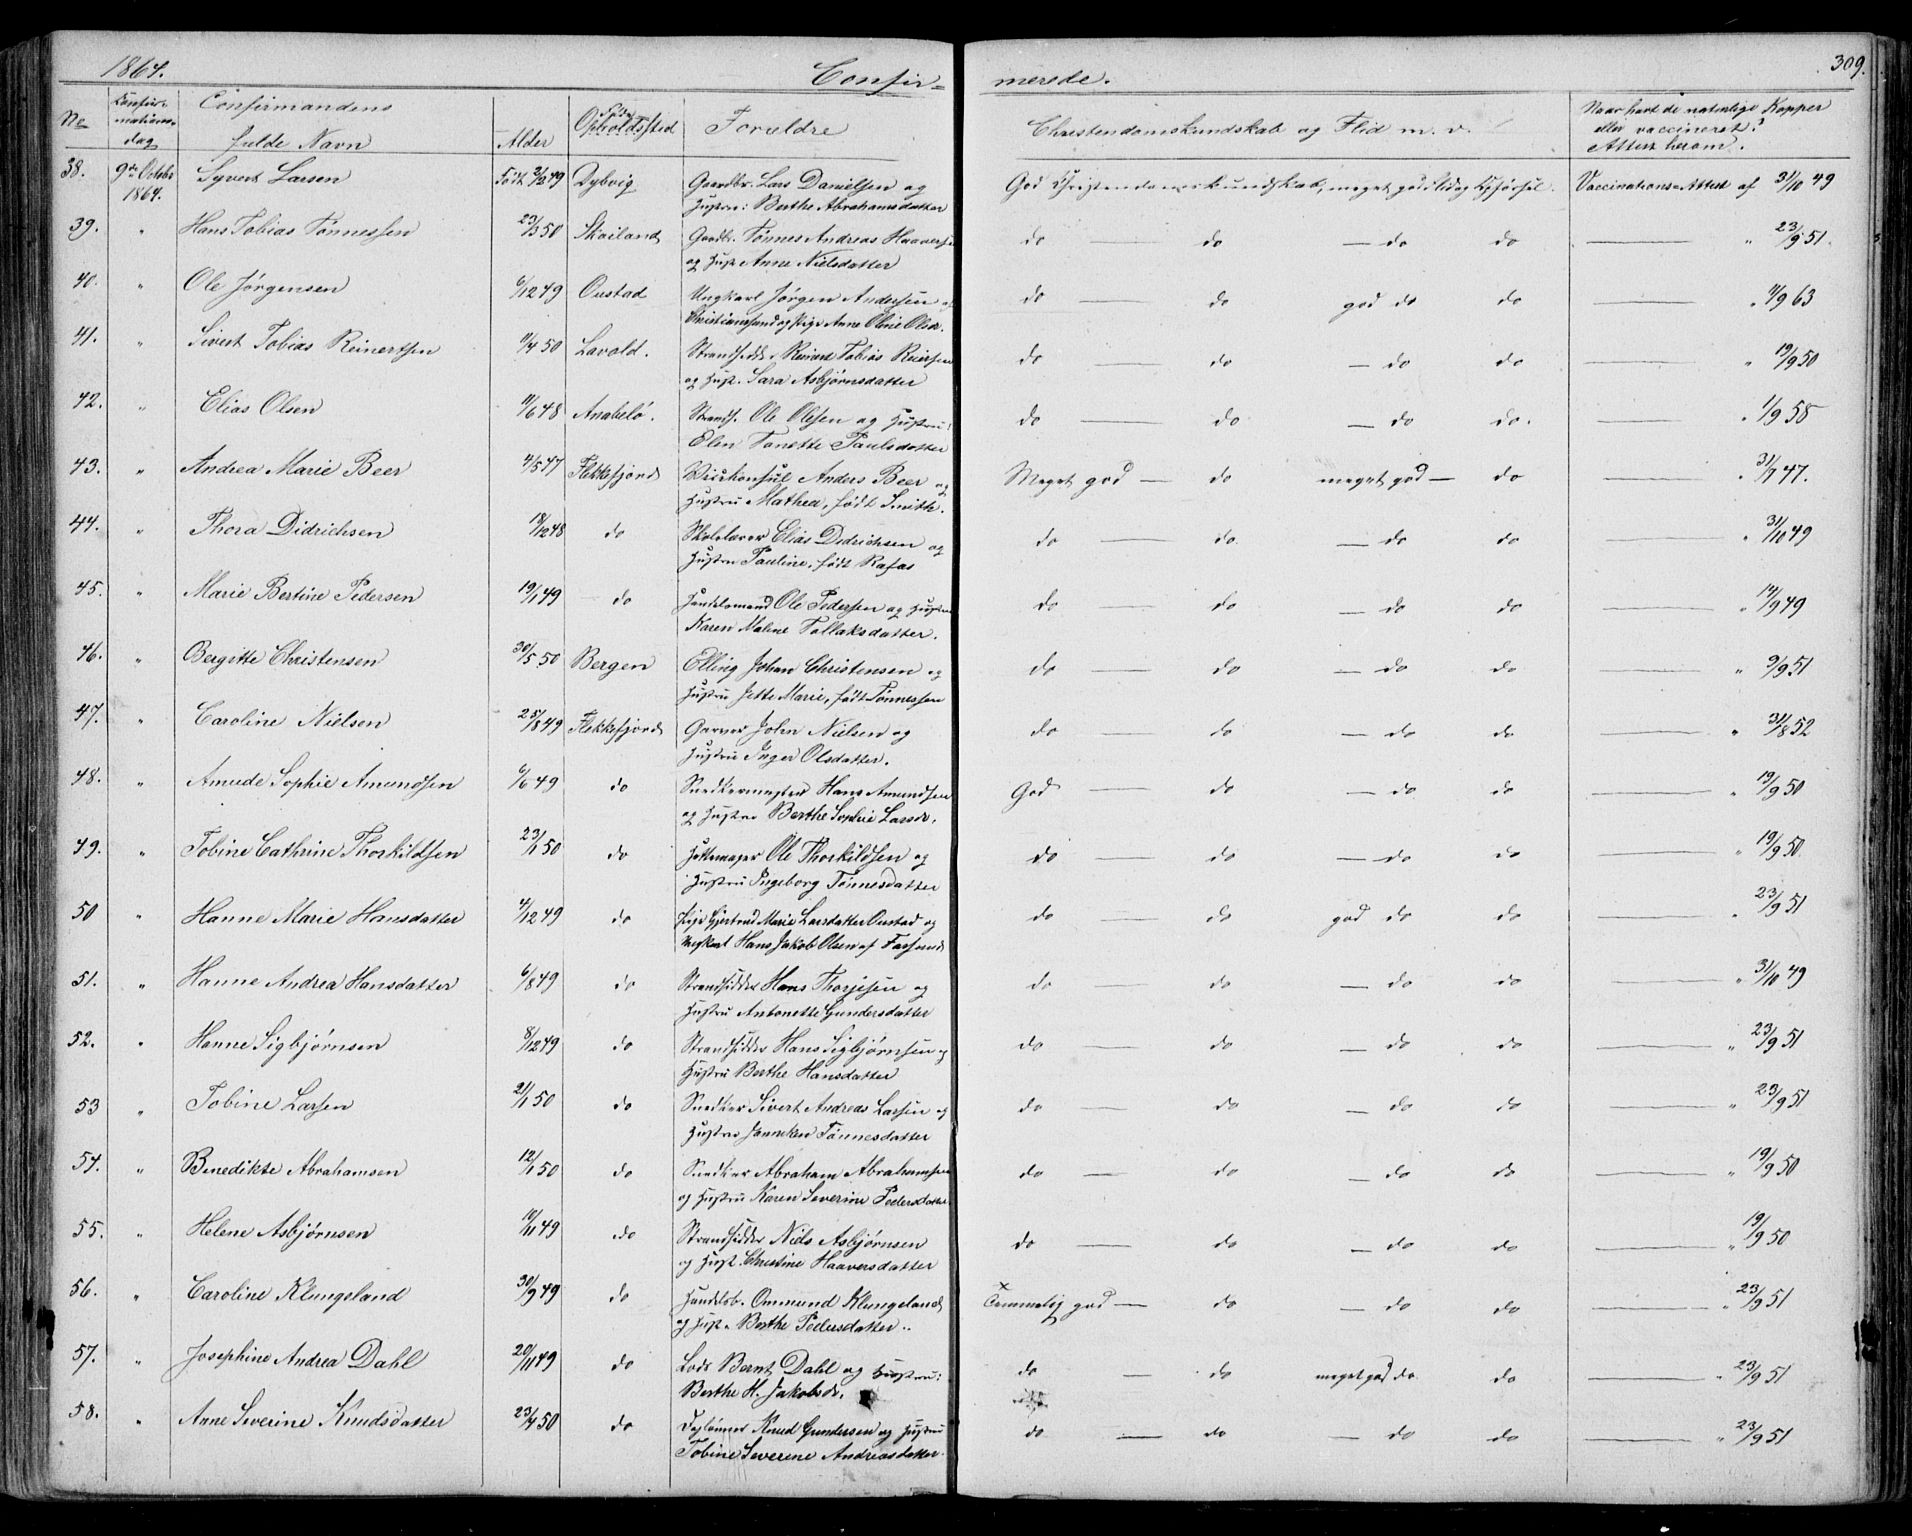 1864.
Confir-
merede.
309.
No
Confir-
mations-
dag
Confirmandens
fulde Navn
Alder
Opholdssted
Forældre
Christendomskundskab og Flid m. v.
Naar havt de naturlige Kopper
eller vaccineret?
Attest herom.
38. 9de Octobr Syvert Larsen Født 2/2 49 Dybvig Gaardbr. Lars Danielsen og God Christendomskundskab, meget god Flid og Opførsel. Vaccinations-Attest af 31/10 49
1864. Hustru: Berthe Abrahamsdatter
39. " Hans Tobias Tønnessen 23/3 50 Skailand Gaardbr. Tønnes Andreas Haaversen do — do — do do — " 23/9 51.
og Hust. Anne Nielsdatter
40. " Ole Jørgensen 6/12 49 Oustad Ungkarl Jørgen Andersen af do — do god do do — " 11/9 63
Christianssand og Pige Anne Oline Olsd.
41. " Sivert Tobias Reinertsen 11/4 50 Lavold. Strandsidd. Reinert Tobias Reiersen do — do — do do — " 19/9 50
og Hust. Sara Asbjørnsdatter
42. " Elias Olsen 11/6 48 Anabelø. Strands. Ole Olesen og Hustru: do — do — do do. — " 1/9 58
Elen Tanette Paulsdatter
43. " Andrea Marie Beer 4/5 47 Flekkefjord Vicekonsul Anders Beer og Meget god — do meget god — do — " 31/7 47.
Hustru Mathea, født Smith.
44. " Thora Didrichsen 18/12 48 do Skolelærer Elias Didrichsen og do — do. — do do — " 31/10 49
Hustru Pauline, født Rafas
45. " Marie Bertine Pedersen 19/1 49 do Handelsmand Ole Pedersen og Hustru do — do — do do — " 14/9 49
Karen Malene Tollaksdatter.
46. " Bergitte Christensen 30/5 50 Bergen Elling Johan Christensen og do — do — do do — " 9/9 51
Hustru Jette Marie, født Tønnessen
47. " Caroline Nielsen 25/8 49 Flekkefjord Garver John Nielsen og do — do — do do — " 31/8 52
Hustru Inger Olsdatter.
48. " Amude Sophie Amundsen 6/6 49 do Snedkermester Hans Amundsen God — do — do do — " 19/9 50
og Hustru Berthe Sophie Larsd.
49. " Tobine Cathrine Thorkildsen 23/1 50 do Hattemager Ole Thorkildsen og do — do — do do — " 19/9 50.
Hustru Ingeborg Tønnesdatter
50 " Hanne Marie Hansdatter 4/12 49 do Pige Gjertrud Marie Larsdatter Oustad og do — do god do do — " 23/9 51
Ungkarl Hans Jakob Olsen af Farsund
51. " Hanne Andrea Hansdatter 6/8 49 do Strandsidder Hans Thorjesen og do — do — do do — " 31/10 49
Hustru Antonette Gundersdatter
52. " Hanne Sigbjørnsen 8/12 49 do Strandsidder Hans Sigbjørnsen og do — do — do do — " 23/9 51
Hustru Berthe Hansdatter
53 " Tobine Larsen 21/1 50 do Snedker Sivert Andreas Larsen og do — do — do do — " 23/9 51
Hustru Janneken Tønnesdatter
54. " Benedikte Abrahamsen 12/1 50 do Snedker Abraham Abrahamsen do — do — do do — " 19/9 50
og Hustru Karen Severine Pedersdatter
55. " Helene Asbjørnsen 10/11 49 do Strandsidder Niels Asbjørnsen do — do — do do — " 19/9 50
og Hust. Christine Haaversdatter
56. " Caroline Klungeland 30/9 49 do Handelsb. Ommund Klungeland × Temmelig god — do — do do — " 23/9 51
og Hust. Berthe Pedersdatter.
57. " Josephine Andrea Dahl 20/11 49 do Lods Bernt Dahl og Hustru: do — do meget god do do — " 23/9 51
Berthe H. Jakobsd.
58. " Anne Severine Knudsdatter 23/4 50 do Dagleier Knud Gundersen og Hustru do — do — do do — " 23/9 51
Tobine Severine Andreasdatter.